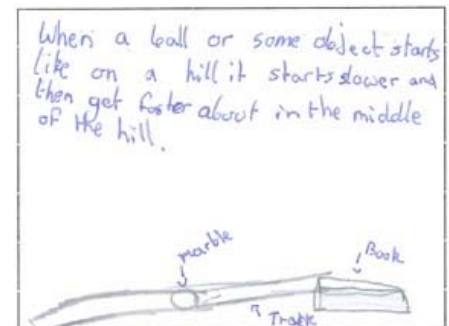 When a ball or some object starts
like on a hill it starts slower and
then get faster about in the middle
of the hill.
marble
Book
Track